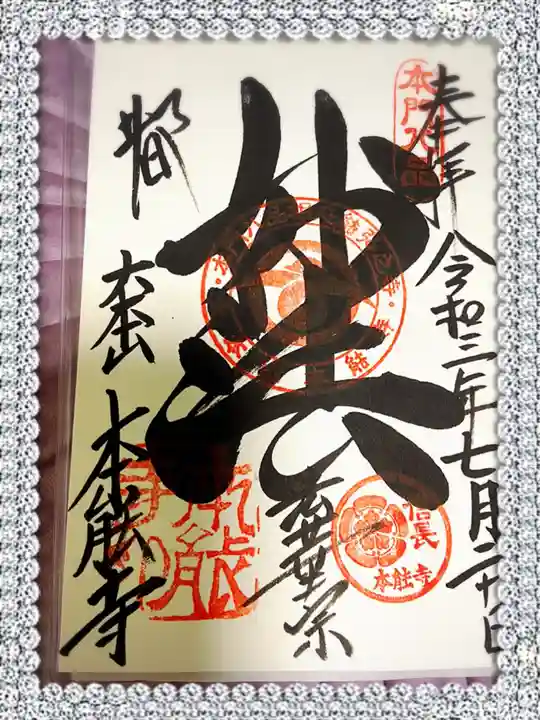 奉拝 令和三年七月二十日
本門八品
妙法
法華宗
信長
本能寺
都
大本山 本能寺
本能寺